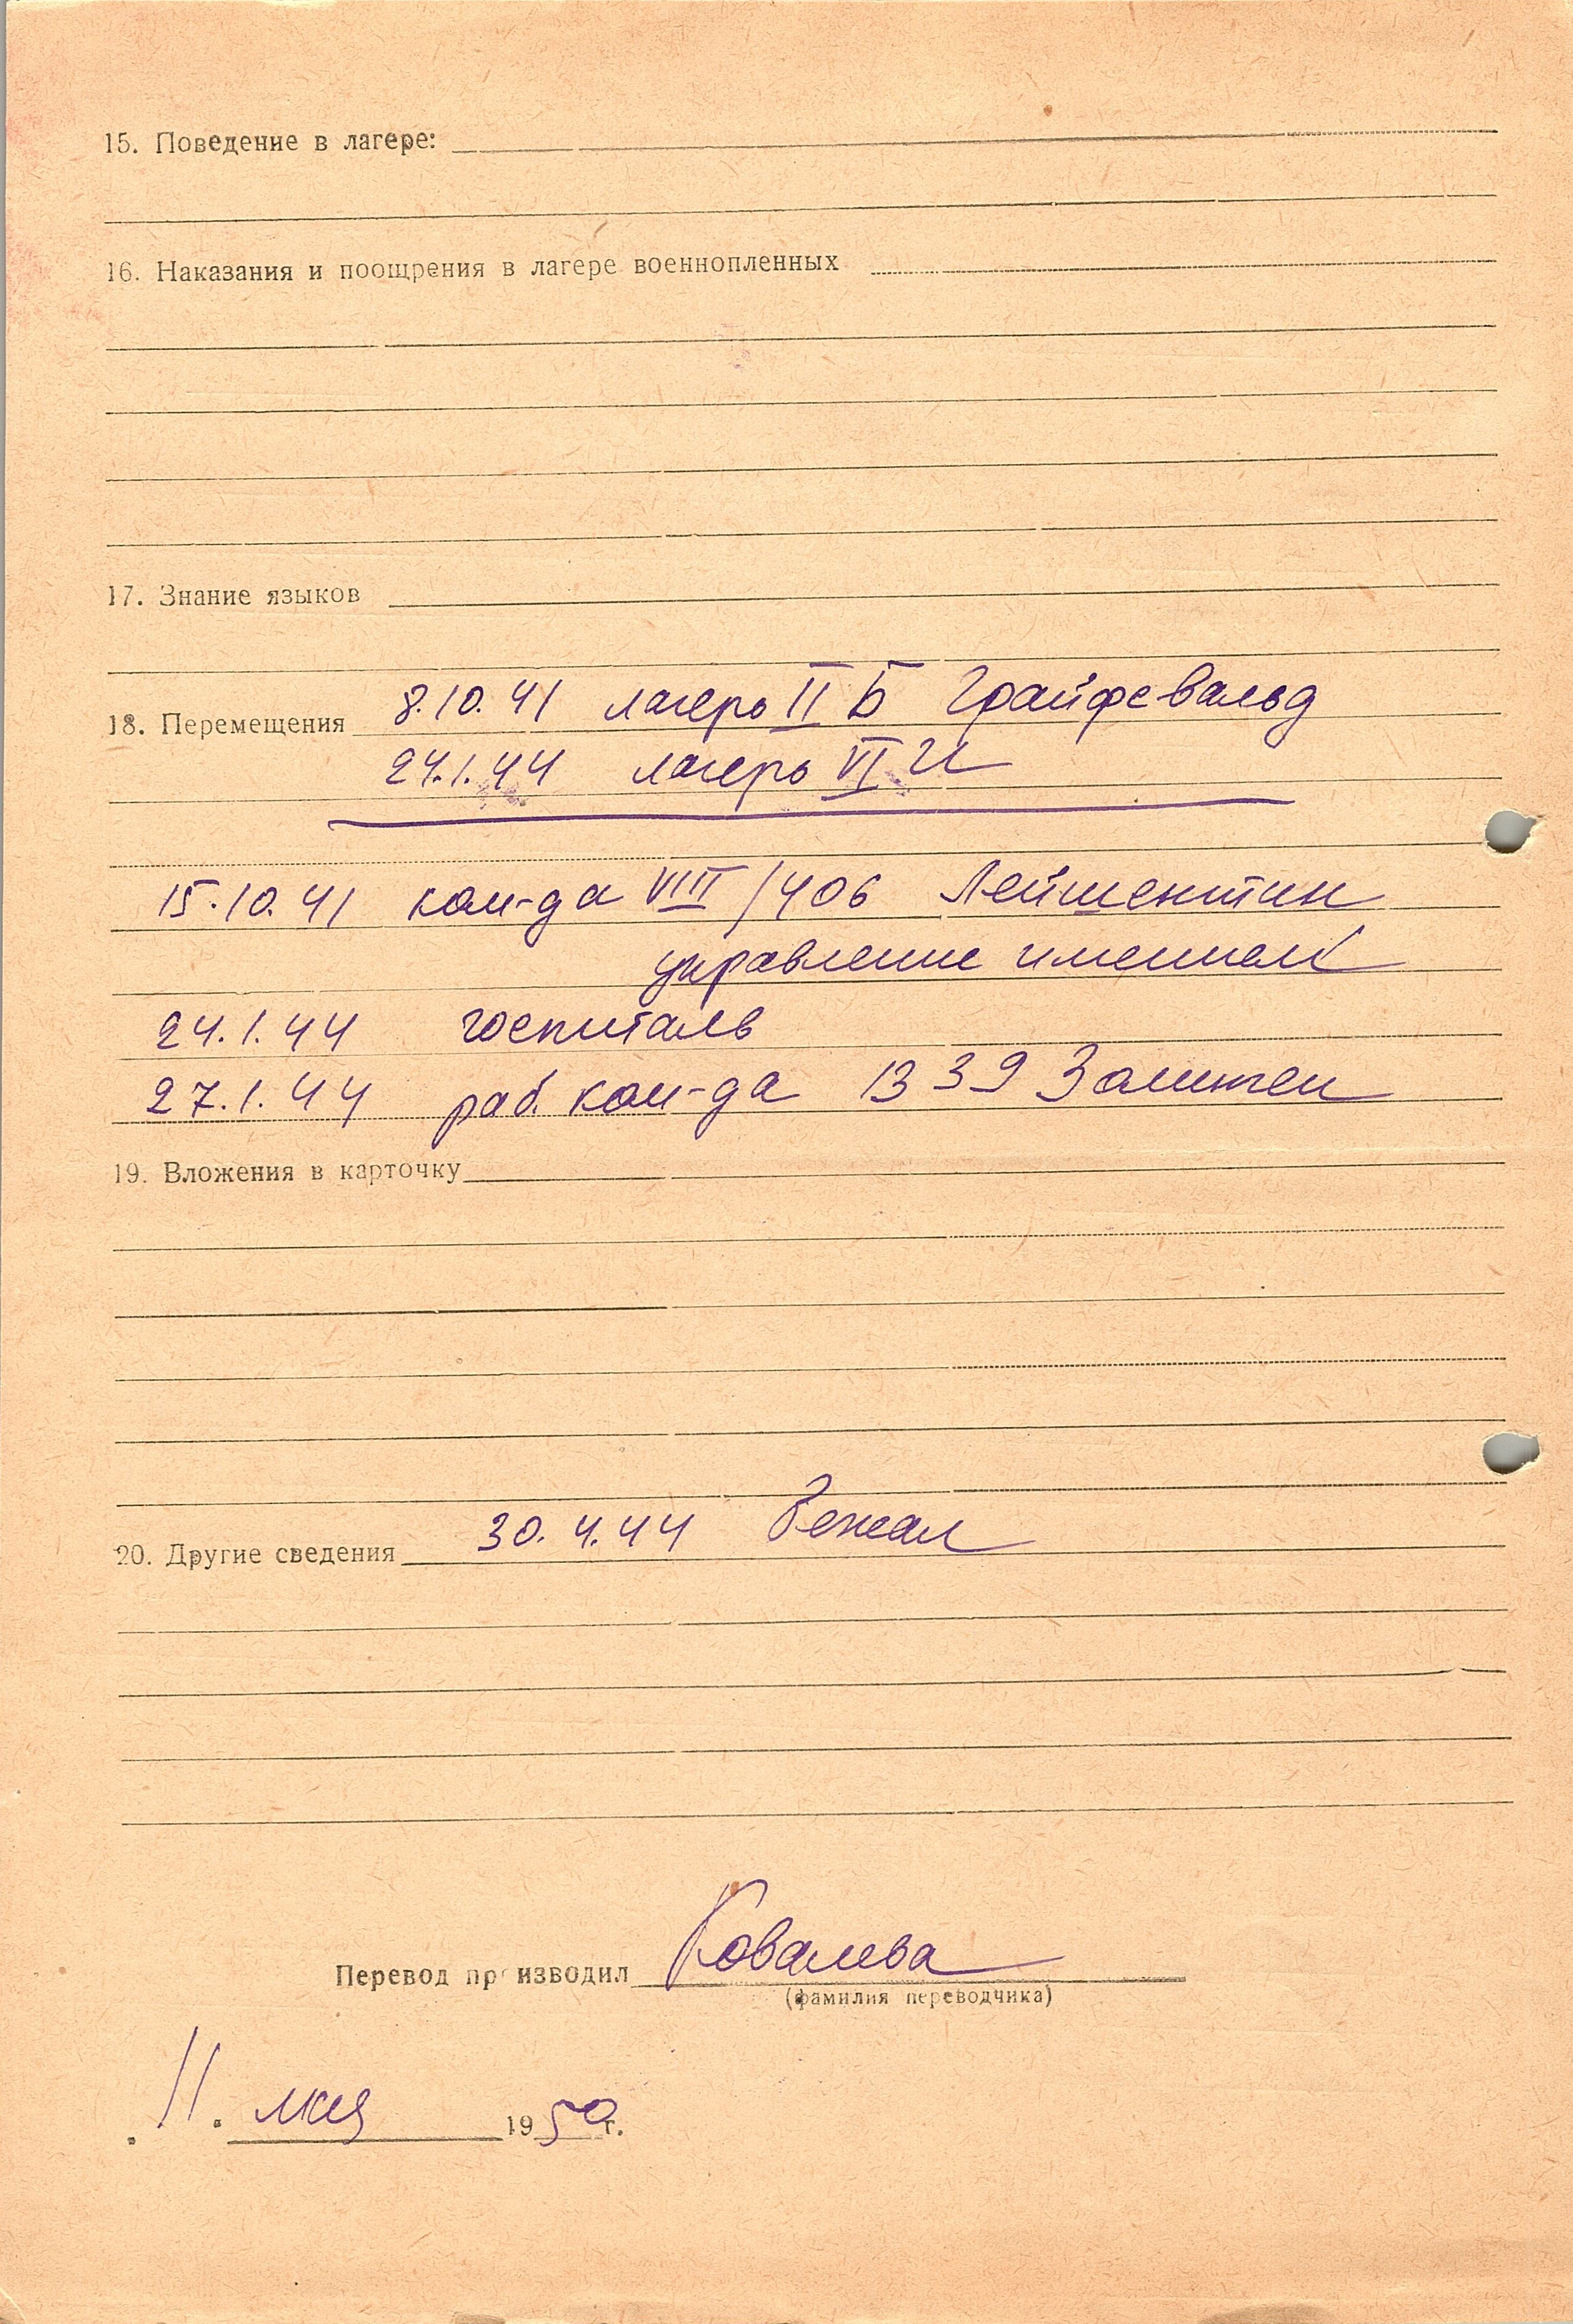 15. Поведение в лагере:
16. Наказания и поощрения в лагере военнопленных
17. Знание языков
18. Перемещения 8.10.41 лагерь II Б Грайфевальд
24.1.44 лагерь VI И
15.10.41 ком-да VIII/406 Лейшентин
управление имением
24.1.44 госпиталь
27.1.44 раб. ком-да 1339
19. Вложения в карточку
20. Другие сведения 30.4.44 Бежал
Перевод производил Ковалева
(фамилия переводчика)
11. мая 1950 г.